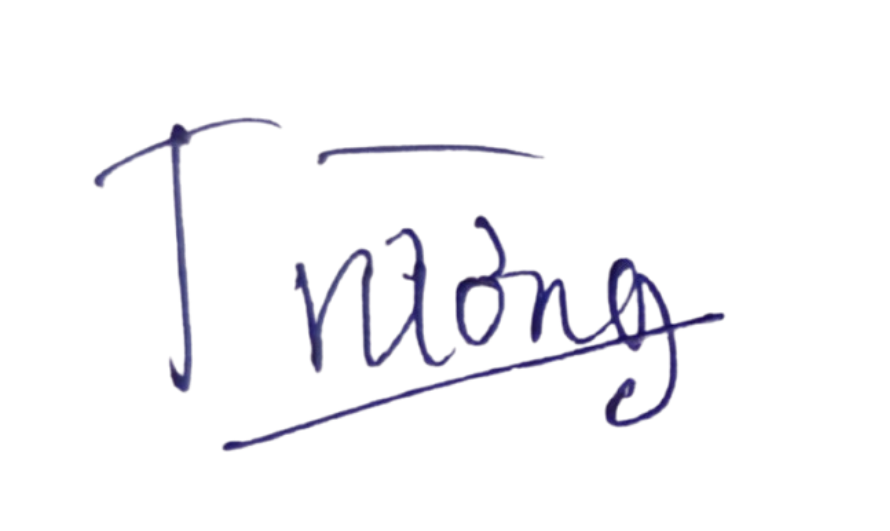 Trương